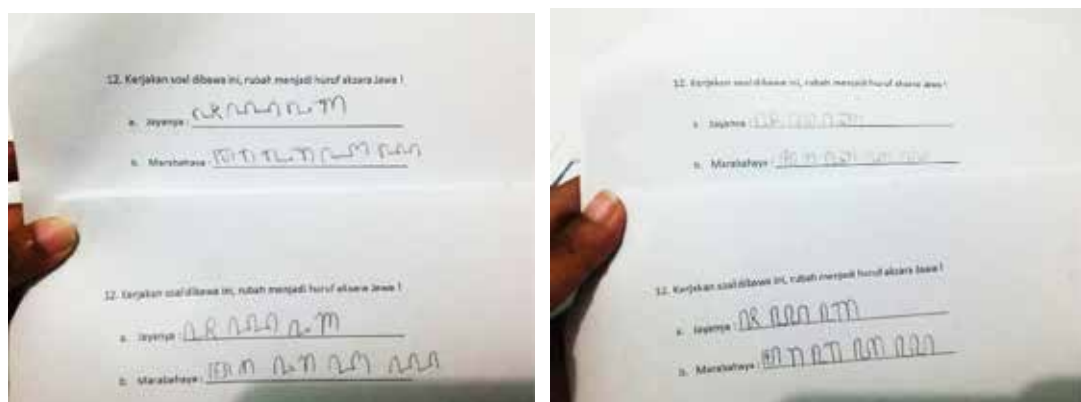 12. Kerjakan soal dibawa ini, rubah menjadi huruf aksara Jawa !
a. Jayanya : ꦗꦪꦚ
b. Marabahaya : ꦩꦫꦧꦲꦪ
12. Kerjakan soal dibawa ini, rubah menjadi huruf aksara Jawa !
a. Jayanya : ꦗꦪꦚ
b. Marabahaya : ꦩꦫꦧꦲꦪ
12. Kerjakan soal dibawa ini, rubah menjadi huruf aksara Jawa !
a. Jayanya :
b. Marabahaya :
12. Kerjakan soal dibawa ini, rubah menjadi huruf aksara Jawa !
a. Jayanya : ꦗꦪꦚ
b. Marabahaya : ꦩꦫꦧꦲꦪ